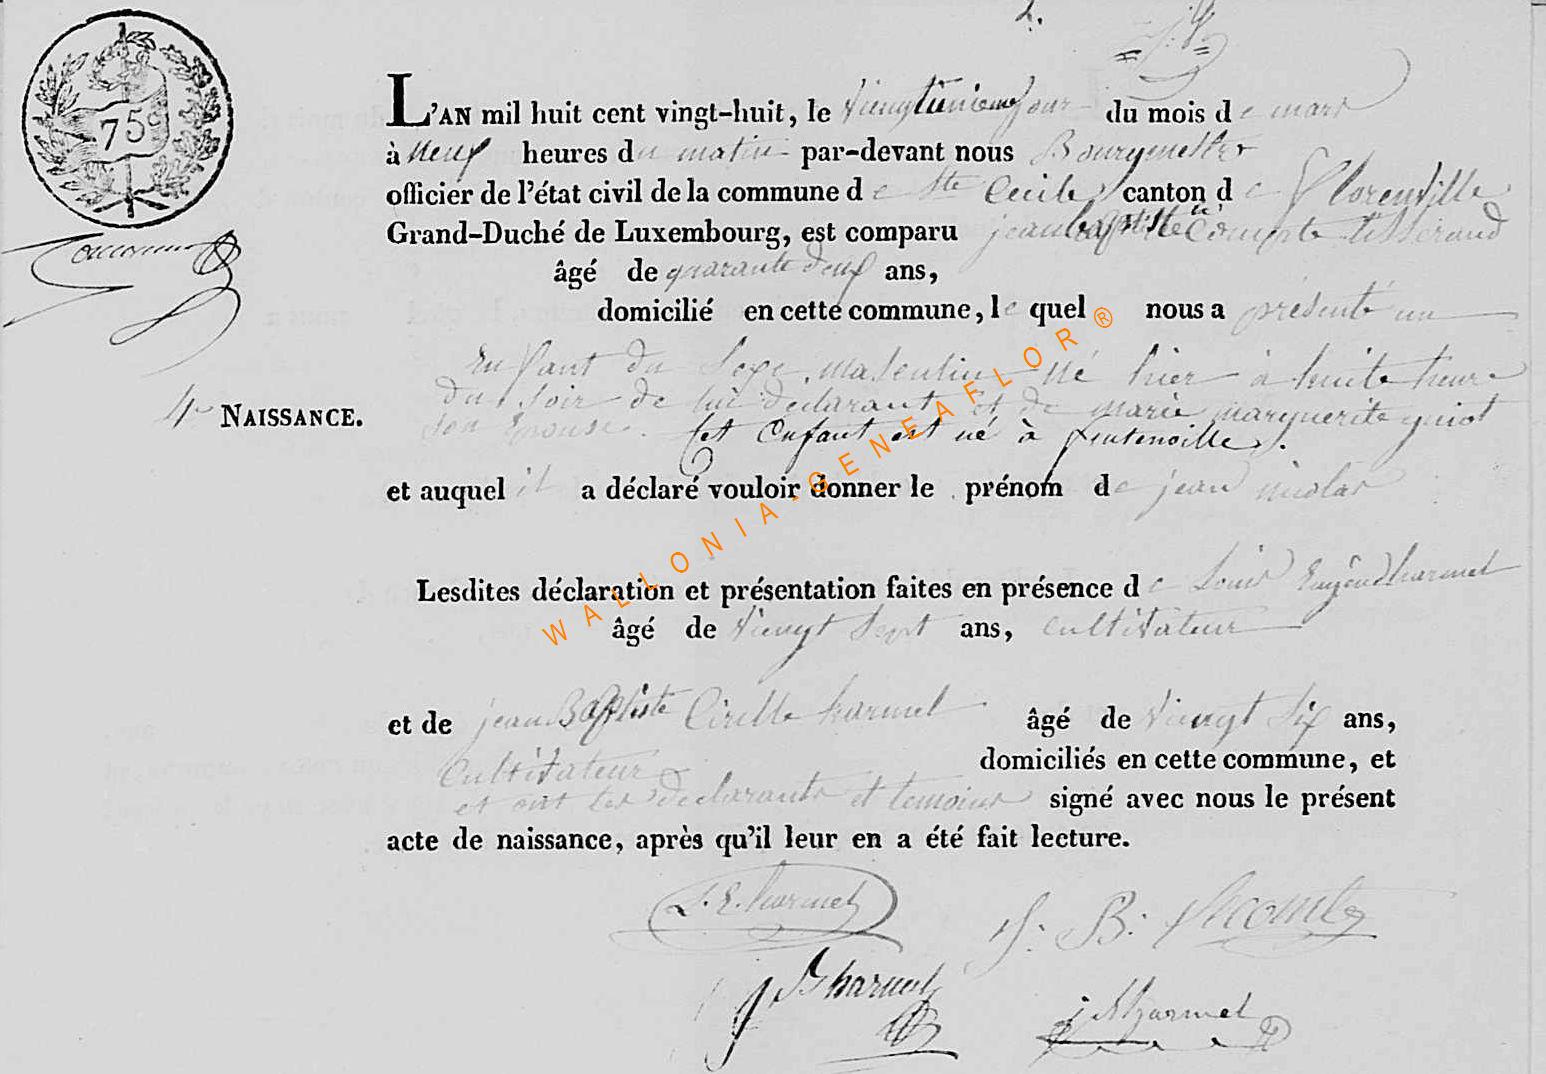 2.
75c
L'AN mil huit cent vingt-huit, le Viengtunieme jour du mois de mars
à neuf heures du matin par-devant nous Bourgmestre
officier de l'état civil de la commune de Ste Cecile canton de Florenville
Grand-Duché de Luxembourg, est comparu jean baptiste Compte tisserand
âgé de quarante deuf ans,
domicilié en cette commune, le quel nous a présenté un
Enfant du Sexe masculin né hier à huite heure
du soir de lui declarant et de marie marguerite guiot
son Epouse. Cet Enfant est né à fontenoille.
4e NAISSANCE.
et auquel il a déclaré vouloir donner le prénom de jean nicolas
Lesdites déclaration et présentation faites en présence de Louis Eugêne harmel
âgé de Viengt Sept ans, cultivateur
et de jean Baptiste Cirille harmel âgé de Viengt Six ans,
Cultivateur domiciliés en cette commune, et
et ont les declarants et temoins signé avec nous le présent
acte de naissance, après qu'il leur en a été fait lecture.
L. E. harmel J. B. Lecomte
J B harmel j N harmel
WALLONIA-GENEAFLOR®